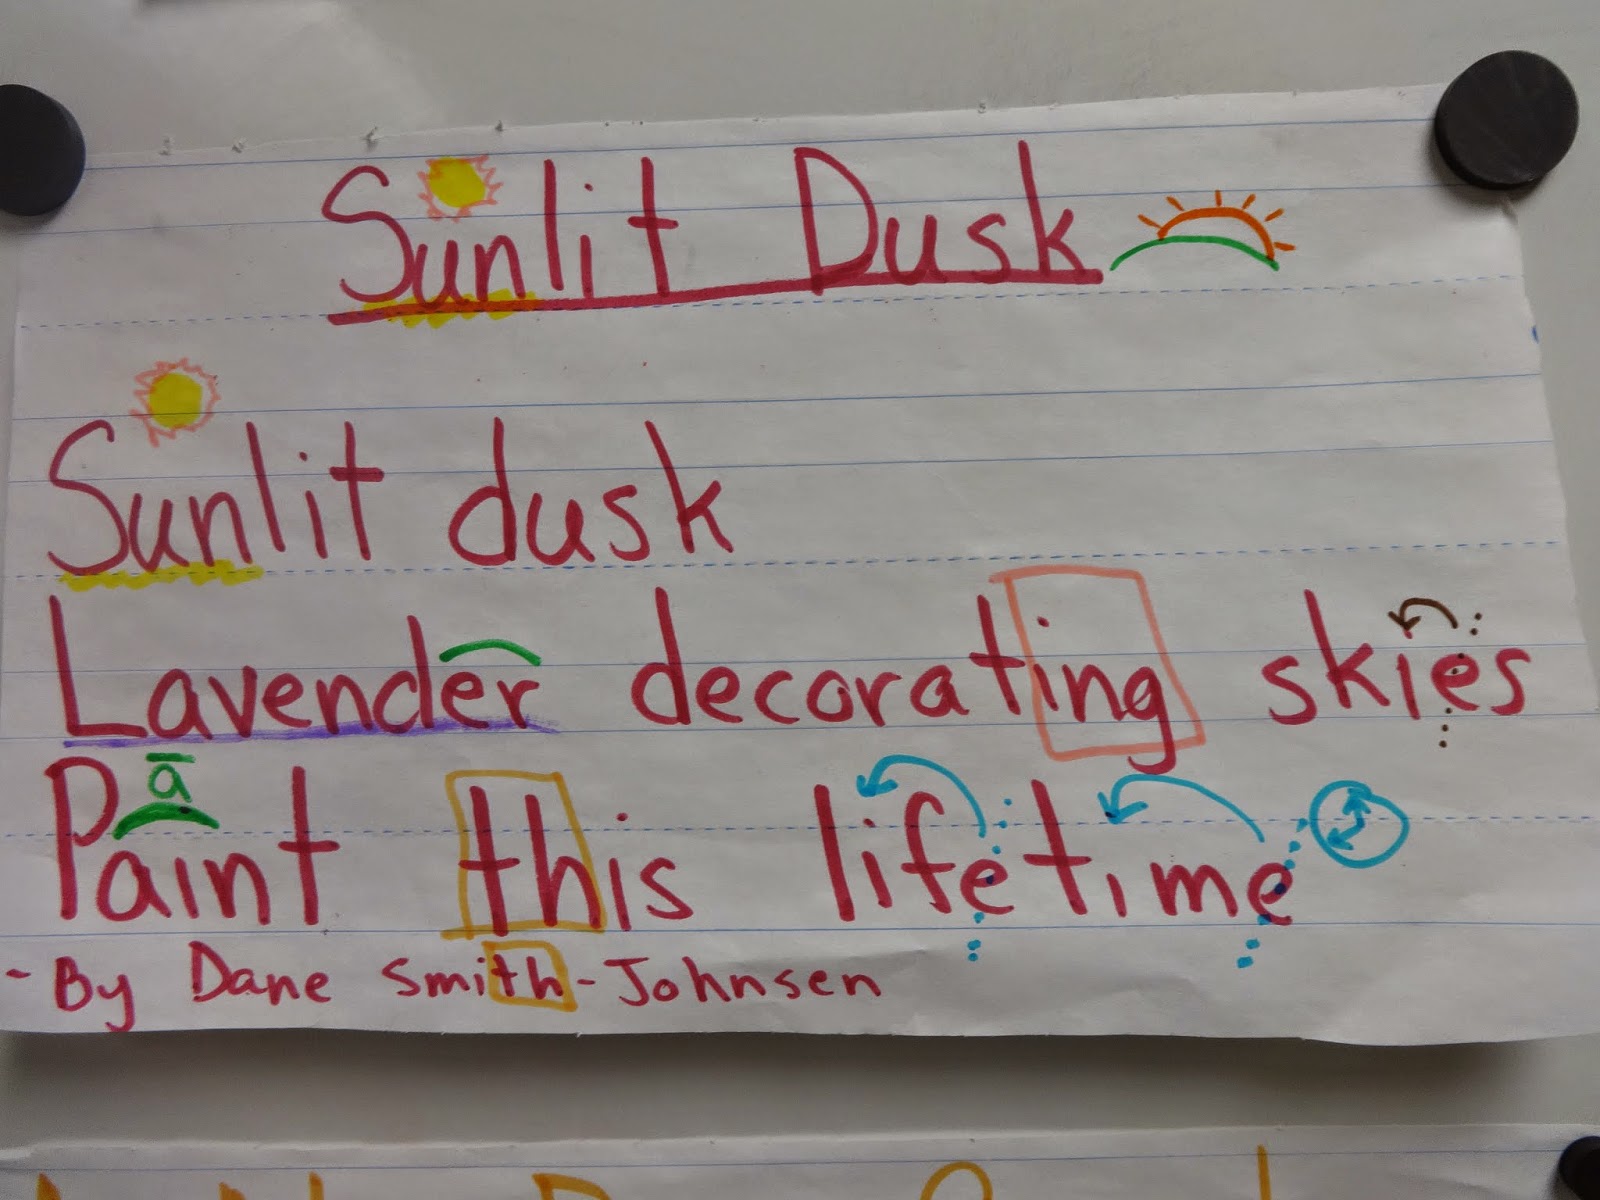 Sunlit Dusk
Sunlit dusk
Lavender decorating skies
ā
Paint this lifetime
- By Dane Smith-Johnsen